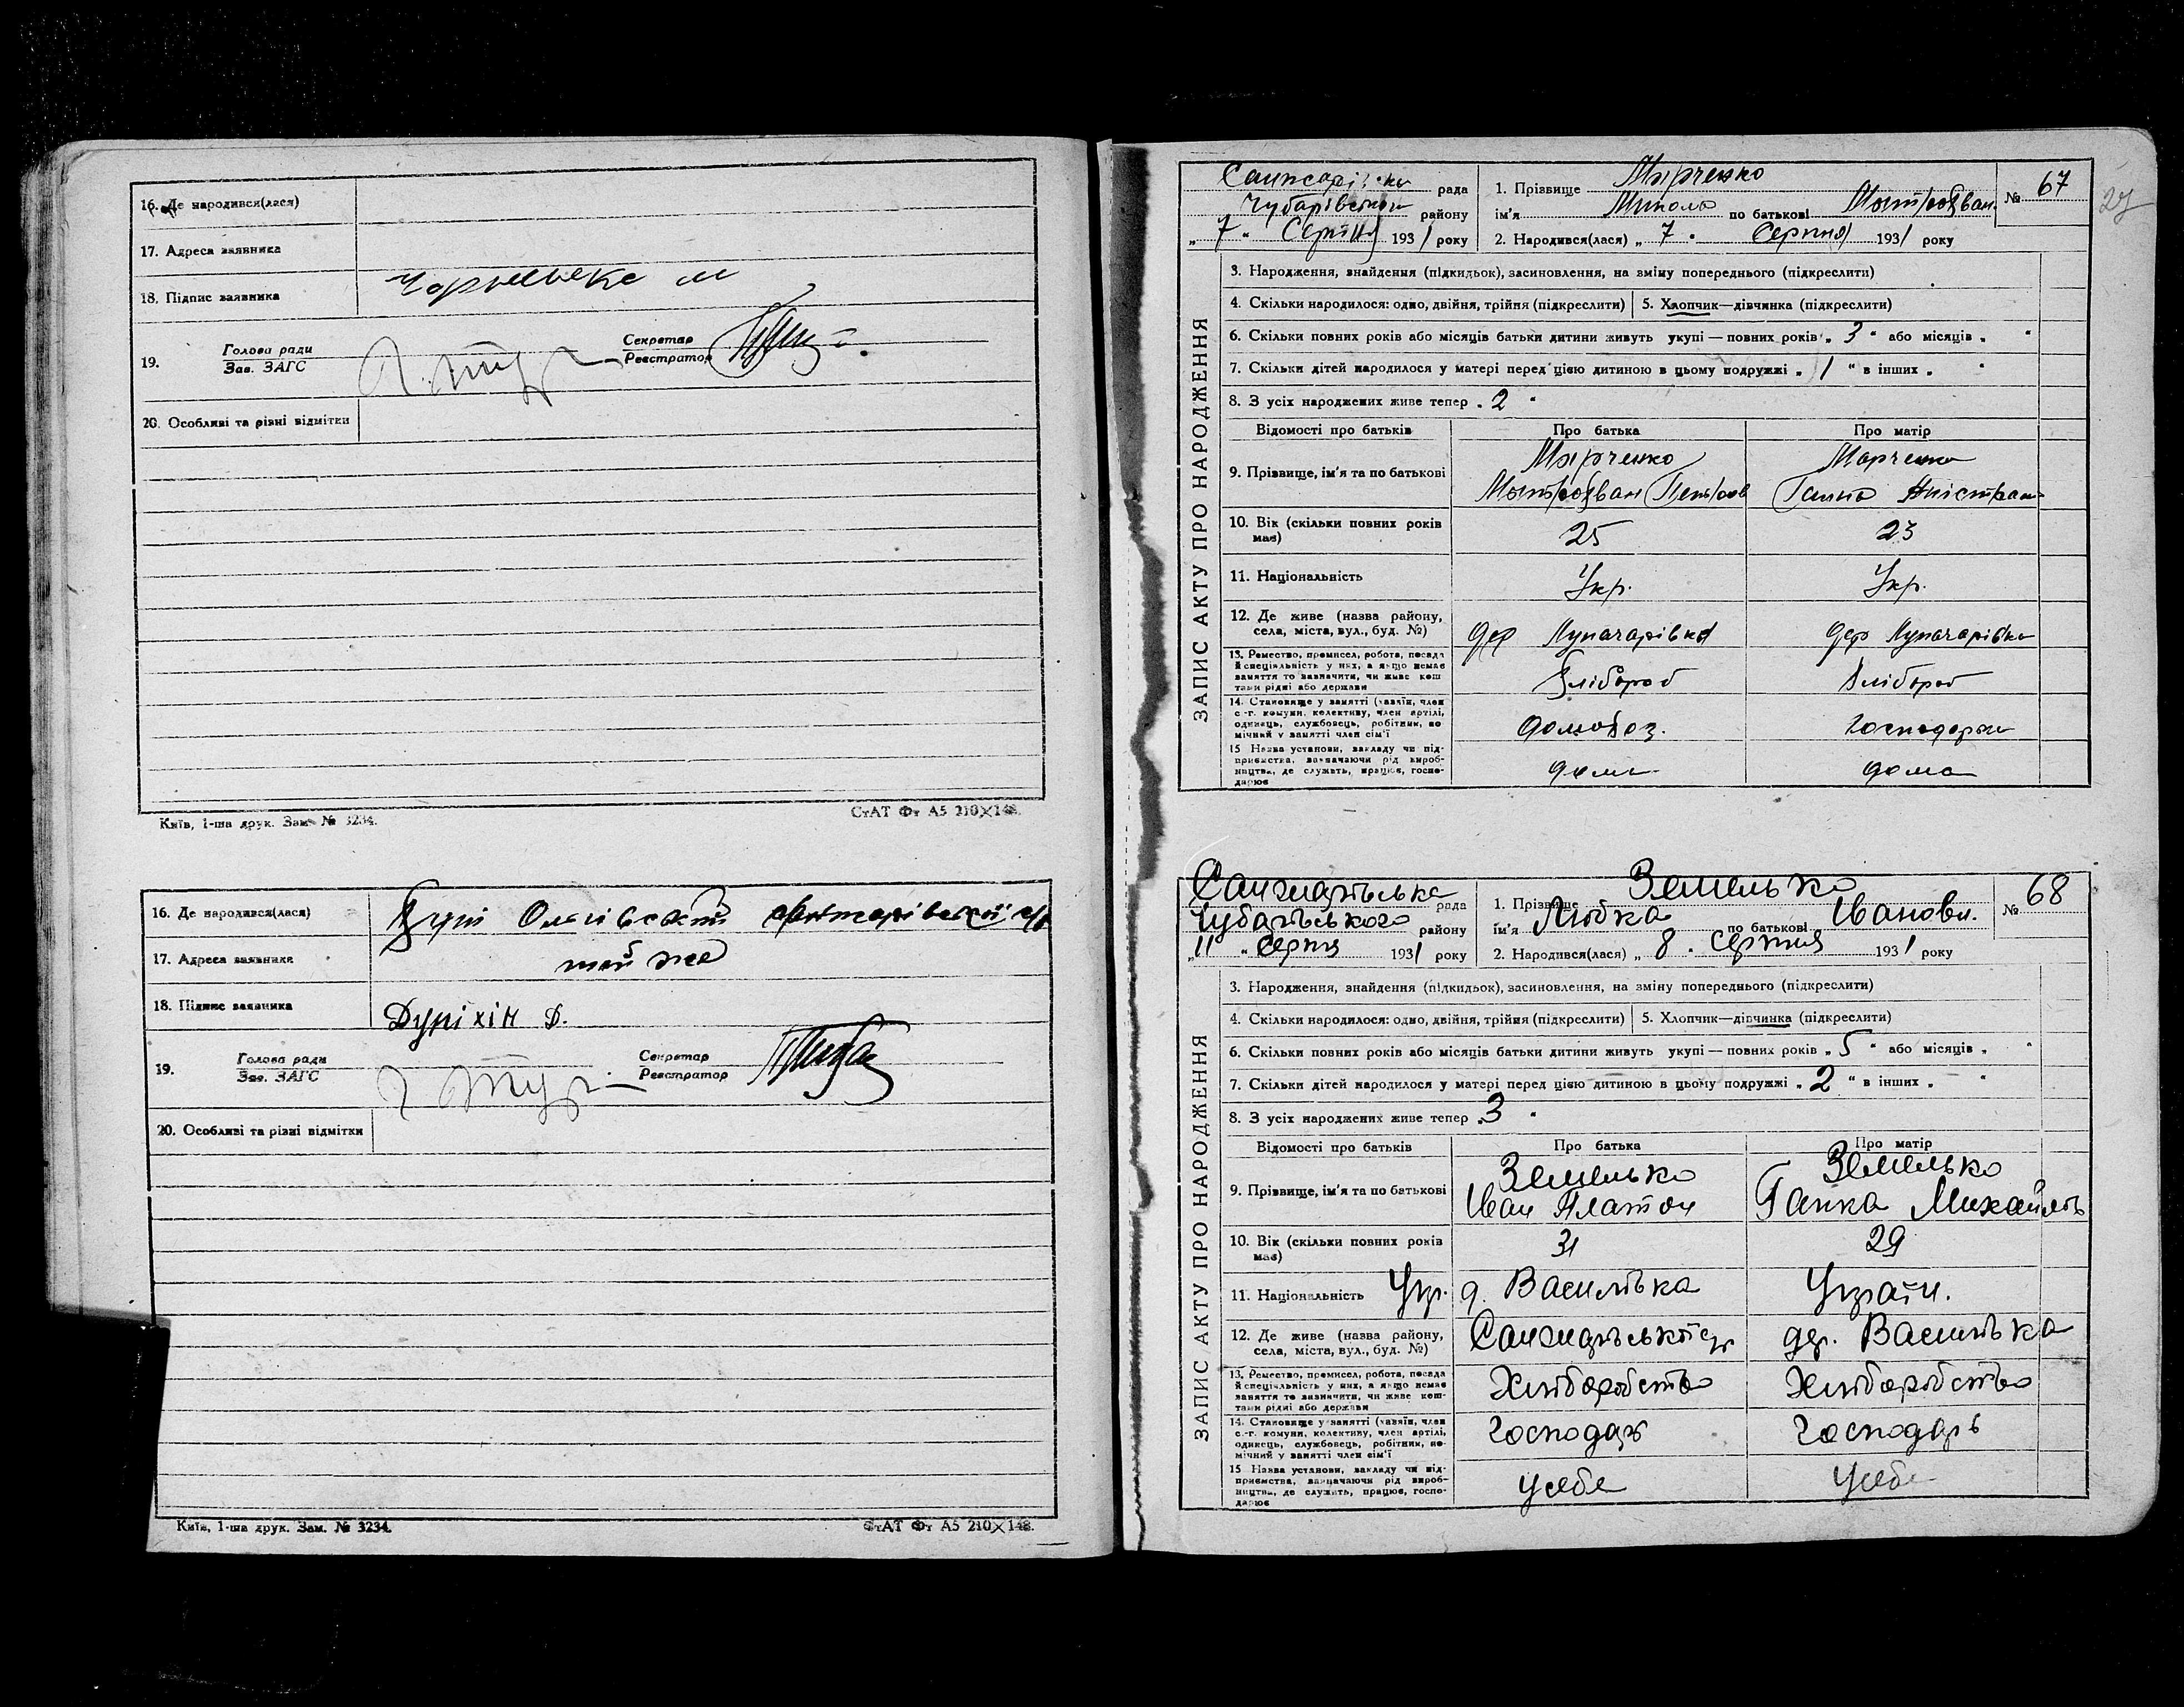 16. Де народився(лася)
17. Адреса заявника
18. Підпис заявника
19. Голова ради
Зав. ЗАГС
Секретар
Реєстратор
20. Особливі та різні відмітки
Київ, 1-ша друк. Зам. № 3234.
СтАТ Фт А5 210×148.
16. Де народився(лася)
17. Адреса заявника
18. Підпис заявника Дуріхін Д.
19. Голова ради
Зав. ЗАГС
Секретар
Реєстратор
20. Особливі та різні відмітки
Київ, 1-ша друк. Зам. № 3234.
СтАТ Фт А5 210×148.
ЗАПИС АКТУ ПРО НАРОДЖЕННЯ
рада
району
„ 7 “ Серпня 1931 року
1. Прізвище Марченко
ім'я Микола по батькові
№ 67
27
2. Народився(лася) „ 7 “ Серпня 1931 року
3. Народження, знайдення (підкидьок), засиновлення, на зміну попереднього (підкреслити)
4. Скільки народилося: одно, двійня, трійня (підкреслити) 5. Хлопчик—дівчинка (підкреслити)
6. Скільки повних років або місяців батьки дитини живуть укупі — повних років „ 3 “ або місяців „ “
7. Скільки дітей народилося у матері перед цією дитиною в цьому подружжі „ 1 “ в інших „ “
8. З усіх народжених живе тепер „ 2 “
Відомості про батьків Про батька Про матір
9. Прізвище, ім'я та по батькові Марченко Марченко
10. Вік (скільки повних років має) 25 23
11. Національність Укр. Укр.
12. Де живе (назва району, села, міста, вул., буд. №) Луначарівка Луначарівка
13. Ремество, промисел, робота, посада й спеціяльність у них, а якщо немає заняття то зазначити, чи живе коштами рідні або держави Хлібороб Хлібороб
14. Становище у занятті (хазяїн, член с.-г. комуни, колективу, член артілі, одинець, службовець, робітник, помічний у занятті член сім'ї
15 Назва установи, закладу чи підприємства, зазначаючи рід виробництва, де служить, працює, господарює дома дома
ЗАПИС АКТУ ПРО НАРОДЖЕННЯ
рада
району
„ 11 “ Серпня 1931 року
1. Прізвище Земелько
ім'я Любка по батькові Івановн.
№ 68
2. Народився(лася) „ 8 “ серпня 1931 року
3. Народження, знайдення (підкидьок), засиновлення, на зміну попереднього (підкреслити)
4. Скільки народилося: одно, двійня, трійня (підкреслити) 5. Хлопчик—дівчинка (підкреслити)
6. Скільки повних років або місяців батьки дитини живуть укупі — повних років „ 5 “ або місяців „ “
7. Скільки дітей народилося у матері перед цією дитиною в цьому подружжі „ 2 “ в інших „ “
8. З усіх народжених живе тепер „ 3 “
Відомості про батьків Про батька Про матір
9. Прізвище, ім'я та по батькові Земелько Земелько
Іван Платон Ганка
10. Вік (скільки повних років має) 31 29
11. Національність Укр. д. Василівка Україн.
12. Де живе (назва району, села, міста, вул., буд. №) дер. Василівка
13. Ремество, промисел, робота, посада й спеціяльність у них, а якщо немає заняття то зазначити, чи живе коштами рідні або держави Хліборобство Хліборобство
14. Становище у занятті (хазяїн, член с.-г. комуни, колективу, член артілі, одинець, службовець, робітник, помічний у занятті член сім'ї Господар Господарь
15 Назва установи, закладу чи підприємства, зазначаючи рід виробництва, де служить, працює, господарює У себе У себе